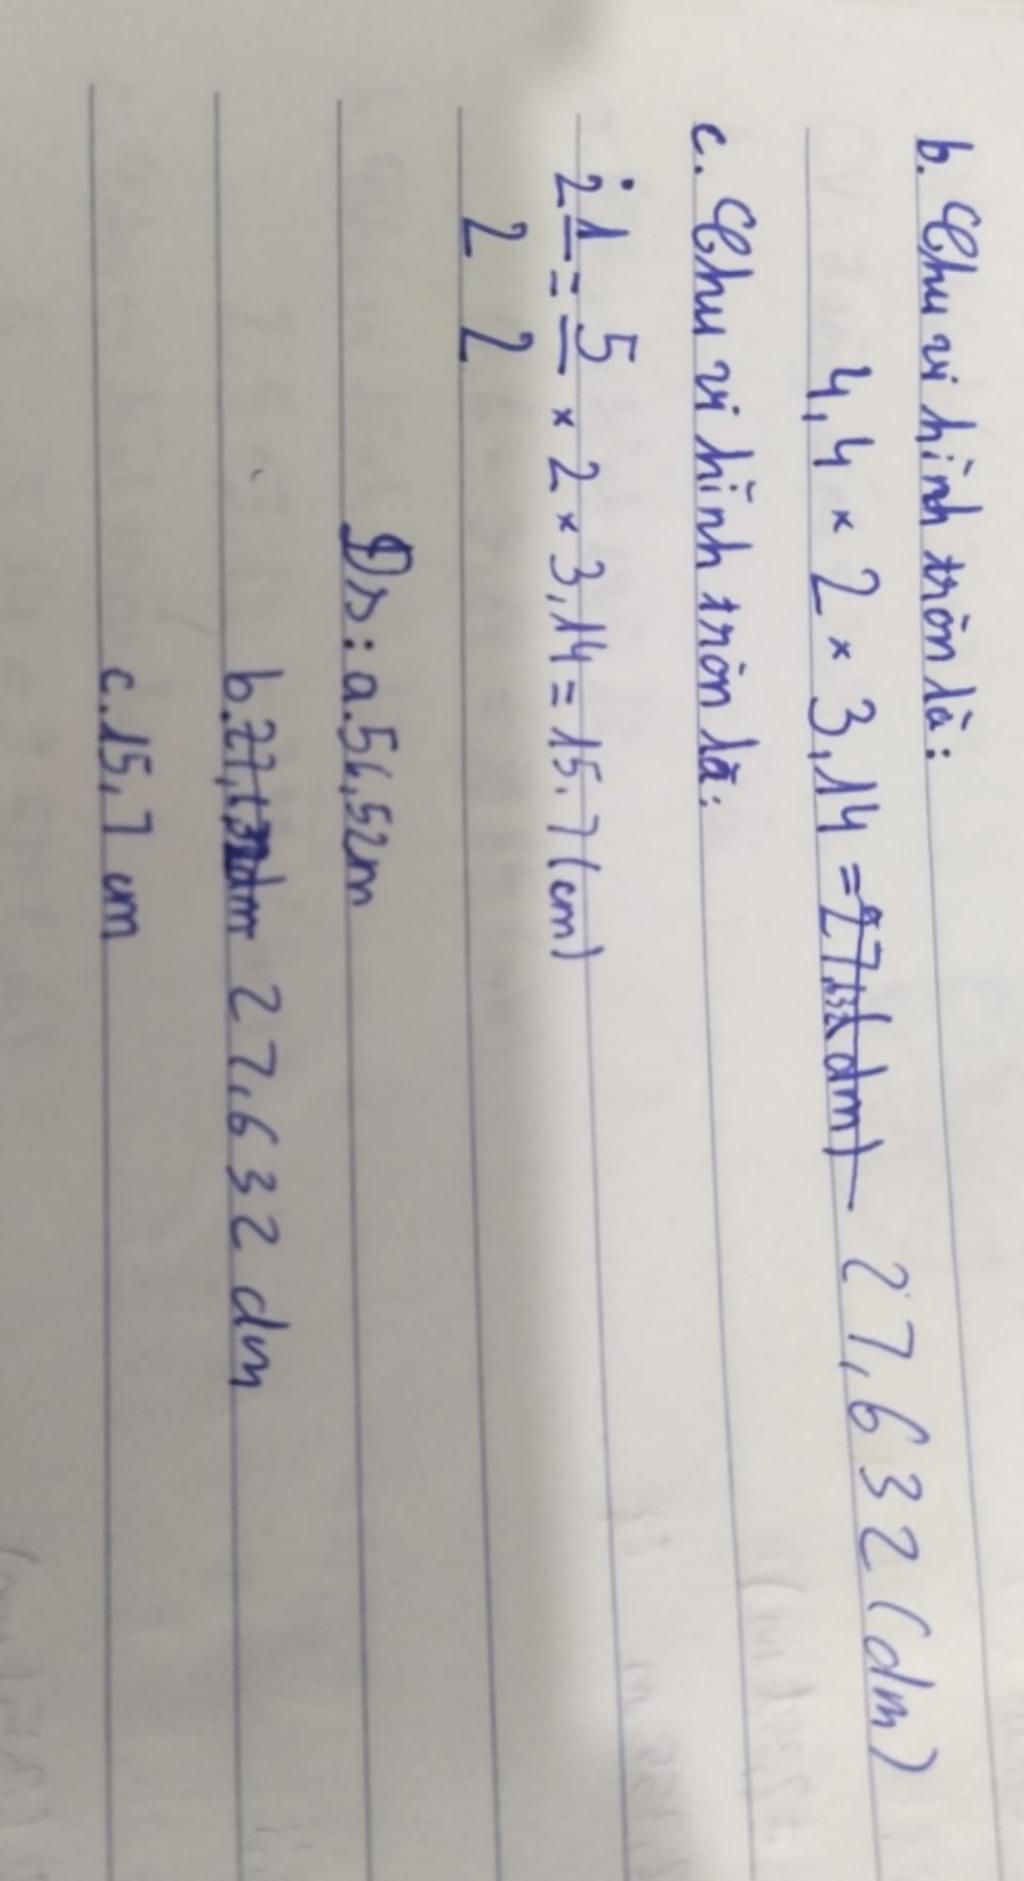 b. Chu vi hình tròn là:
4,4 × 2 × 3,14 = 27,632 (dm)
c. Chu vi hình tròn là:
2 1/2 = 5/2 × 2 × 3,14 = 15.7 (cm)
Đs: a. 56,52m
b. 27,632 dm
c. 15,7 cm